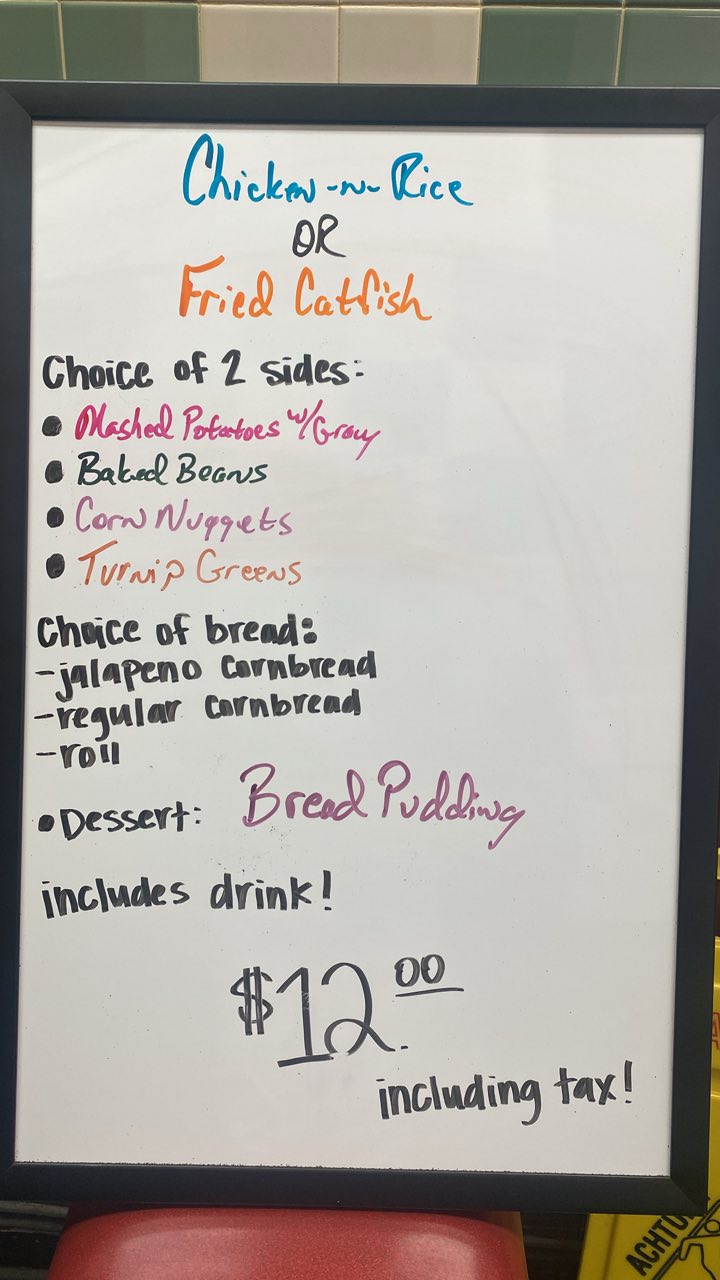 Chicken-n-Rice
OR
Fried Catfish
Choice of 2 sides:
• Mashed Potatoes w/Gravy
• Baked Beans
• Corn Nuggets
• Turnip Greens
Choice of bread:
-jalapeno cornbread
-regular cornbread
-roll
• Dessert: Bread Pudding
includes drink!
$12.00
including tax!